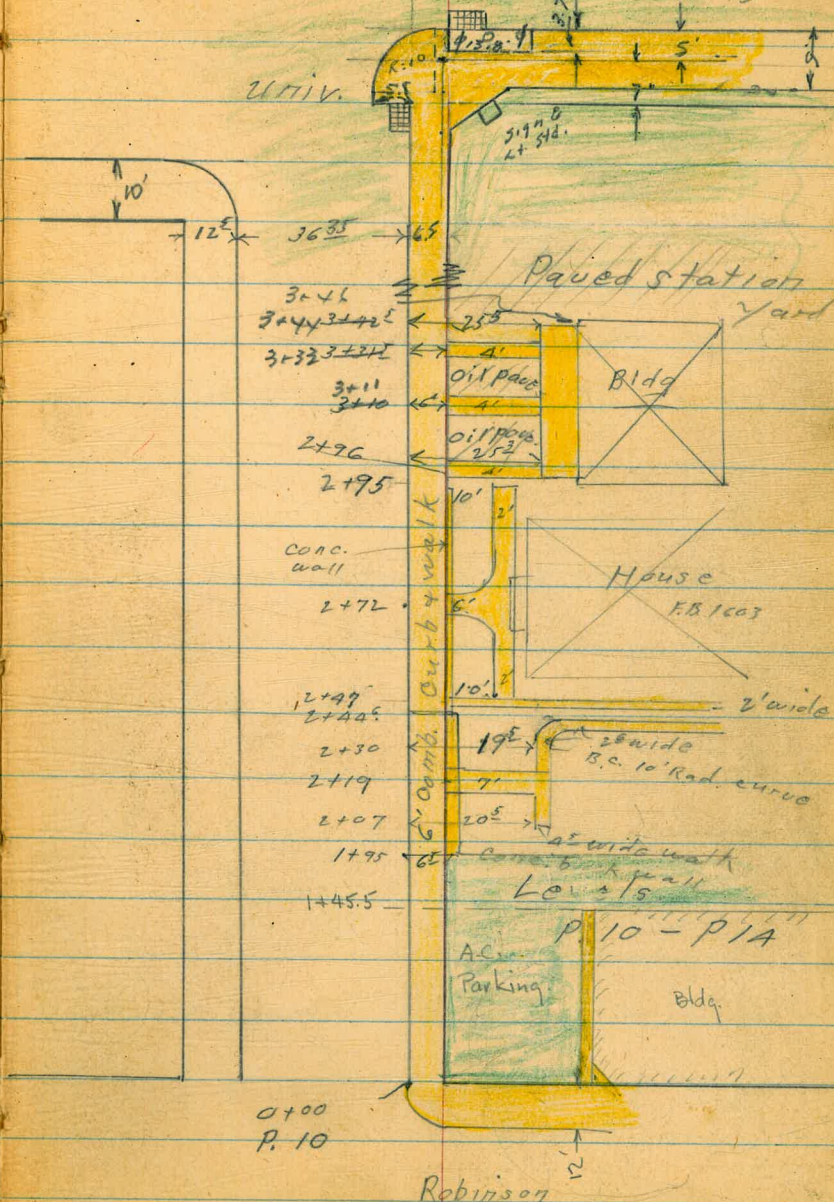 Univ.
R. 10'
5.5
5'
7"
9'
Sign &
Lt Std.
10'
12⁵
36³⁵
6.5
Paved station
Yard
3+46
3+44 3+42⁵
25⁵
3+33 3+31⁵
4'
oil pave.
Bldg
3+11
3+10
6'
4'
oil pave.
2+96
25³
4'
2+95
10'
2'
conc.
wall
House
F.B. 1603
2+72
6'
6' Comb. Curb & walk
2'
1.0'
2+47
2+44⁵
2' wide
2+30
19⁵
2⁶ wide
B.C. 10' Rad. curve
2+19
7'
2+07
20⁵
4⁵ wide walk
1+95
6⁵
Conc. b k wall
Levels
1+45.5
P. 10 - P 14
A.C.
Parking.
Bldg.
0+00
P. 10
12'
Robinson